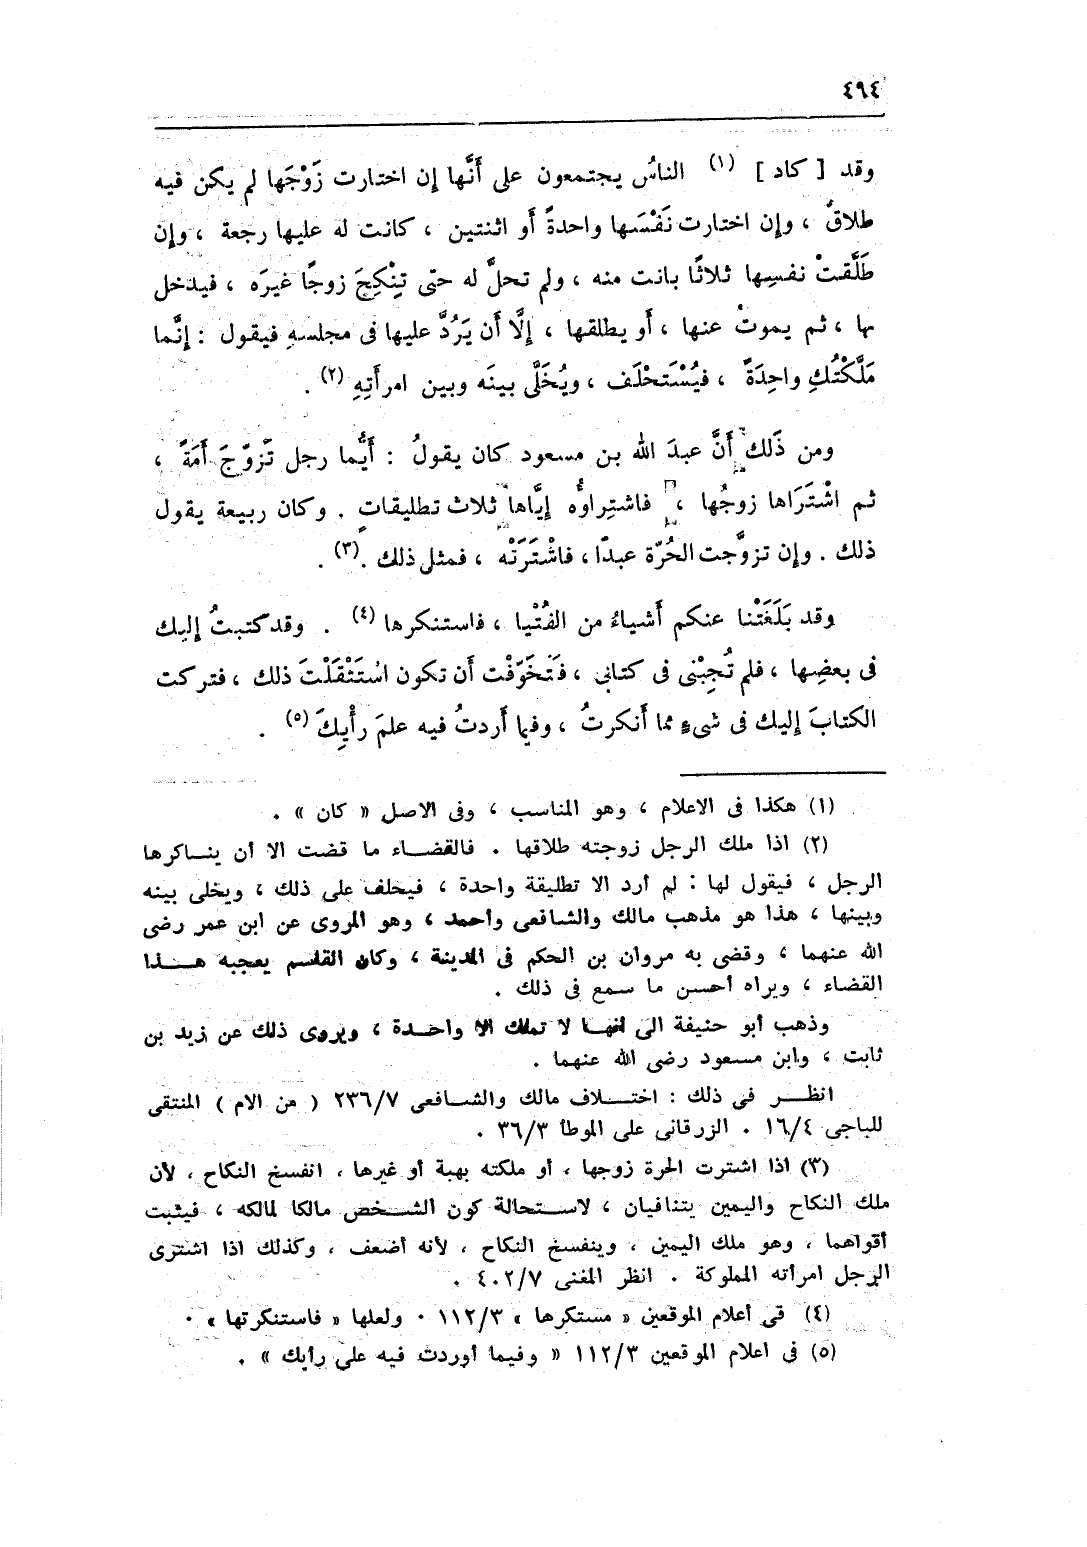 ٤٩٤
وقد [ كاد ] (١) الناسُ يجتمعون على أَنَّها إن اختارت زَوْجَها لم يكن فيه
طلاقٌ ، وإن اختارت نَفْسَها واحدةً أو اثنتين ، كانت له عليها رجعة ، وإن
طَلَّقتْ نفسِها ثلاثًا بانت منه ، ولم تحلَّ له حتى تِنْكِحَ زوجًا غيرَه ، فيدخل
بها ، ثم يموتُ عنها ، أَو يطلقها ، إلَّا أَن يَرُدَّ عليها فى مجلسهِ فيقول : إنَّما
مَلَّكْتُكِ واحِدَةً ، فيُسْتَحْلَف ، ويُخَلَّى بينَه وبين امرأَتِهِ (٢) .
ومن ذَلك أَنَّ عبدَ الله بن مسعود كان يقولُ : أَيُّما رجل تَزوّجَ أَمَةً ،
ثم اشْتَرَاها زوجُها ، فاشتِراوُه إيَّاها ثلاث تطليقاتٍ . وكان ربيعة يقول
ذلك . وإن تزوَّجت الحُرّة عبدًا ، فاشْتَرَتْه ، فمثل ذلك .(٣) .
وقد بَلَغَتْنا عنكم أَشياءُ من الفُتْيا ، فاستنكرها (٤) . وقد كتبتُ إليك
فى بعضِها ، فلم تُجِبْنى فى كتابى ، فَتَخَوّفْت أَن تكون اسْتَثْقَلْتَ ذلك ، فتركت
الكتابَ إليك فى شىءٍ مما أَنكرتُ ، وفيما أَردتُ فيه علمَ رأْيِكَ (٥) .
(١) هكذا فى الاعلام ، وهو المناسب ، وفى الاصل « كان » .
(٢) اذا ملك الرجل زوجته طلاقها . فالقضاء ما قضت الا أن يناكرها
الرجل ، فيقول لها : لم أرد الا تطليقة واحدة ، فيحلف على ذلك ، ويخلى بينه
وبينها ، هذا هو مذهب مالك والشافعى واحمد ، وهو المروى عن ابن عمر رضى
الله عنهما ، وقضى به مروان بن الحكم فى المدينة ، وكان القاسم يعجبه هذا
القضاء ، ويراه أحسن ما سمع فى ذلك .
وذهب أبو حنيفة الى انها لا تملك الا واحدة ، ويروى ذلك عن زيد بن
ثابت ، وابن مسعود رضى الله عنهما .
انظر فى ذلك : اختلاف مالك والشافعى ٢٣٦/٧ ( من الام ) المنتقى
للباجى ١٦/٤ . الزرقانى على الموطأ ٣٦/٣ .
(٣) اذا اشترت الحرة زوجها ، أو ملكته بهبة أو غيرها ، انفسخ النكاح ، لأن
ملك النكاح واليمين يتنافيان ، لاستحالة كون الشخص مالكا لمالكه ، فيثبت
أقواهما ، وهو ملك اليمين ، وينفسخ النكاح ، لأنه أضعف ، وكذلك اذا اشترى
الرجل امرأته المملوكة . انظر المغنى ٤٠٢/٧ .
(٤) فى أعلام الموقعين « مستكرها » ١١٢/٣ . ولعلها « فاستنكرتها » .
(٥) فى اعلام الموقعين ١١٢/٣ « وفيما أوردت فيه على رأيك » .